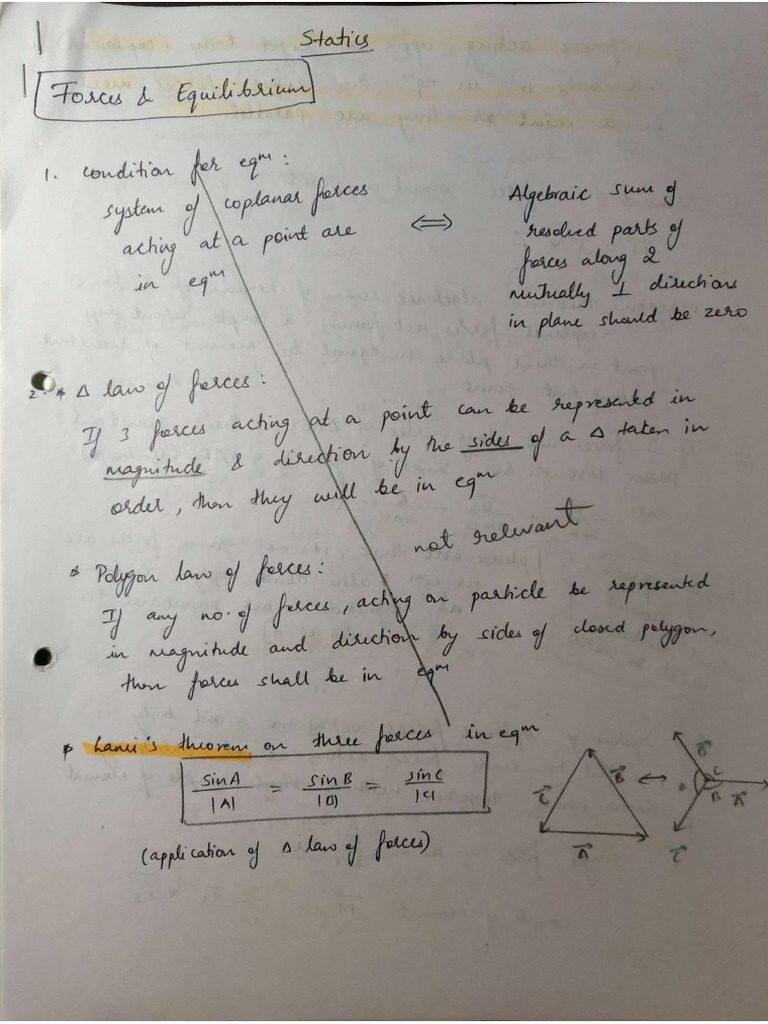 Statics
Forces & Equilibrium
1. Condition for eqm :
system of coplanar forces
acting at a point are
in eqm
⇔
Algebraic sum of
resolved parts of
forces along 2
mutually ⊥ directions
in plane should be zero
2. * Δ law of forces :
If 3 forces acting at a point can be represented in
magnitude & direction by the sides of a Δ taken in
order, then they will be in eqm
not relevant
* Polygon law of forces :
If any no. of forces, acting on particle be represented
in magnitude and direction by sides of closed polygon,
then forces shall be in eqm
* Lami's theorem on three forces in eqm
sinA/|A| = sinB/|B| = sinC/|C|
(application of Δ law of forces)
C B A
B A C B A C